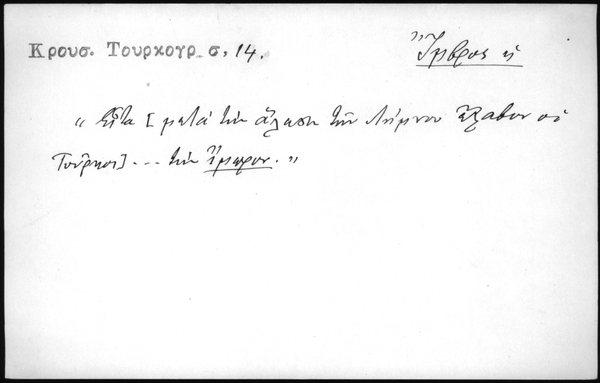 Κρουσ. Τουρκογρ. σ. 14.
Ἴμβρος ἡ
"Εἶτα [μετὰ τὴν ἅλωσιν τῆς Λήμνου ἔλαβον οἱ
Τοῦρκοι] ... τὴν Ἴμπρον."